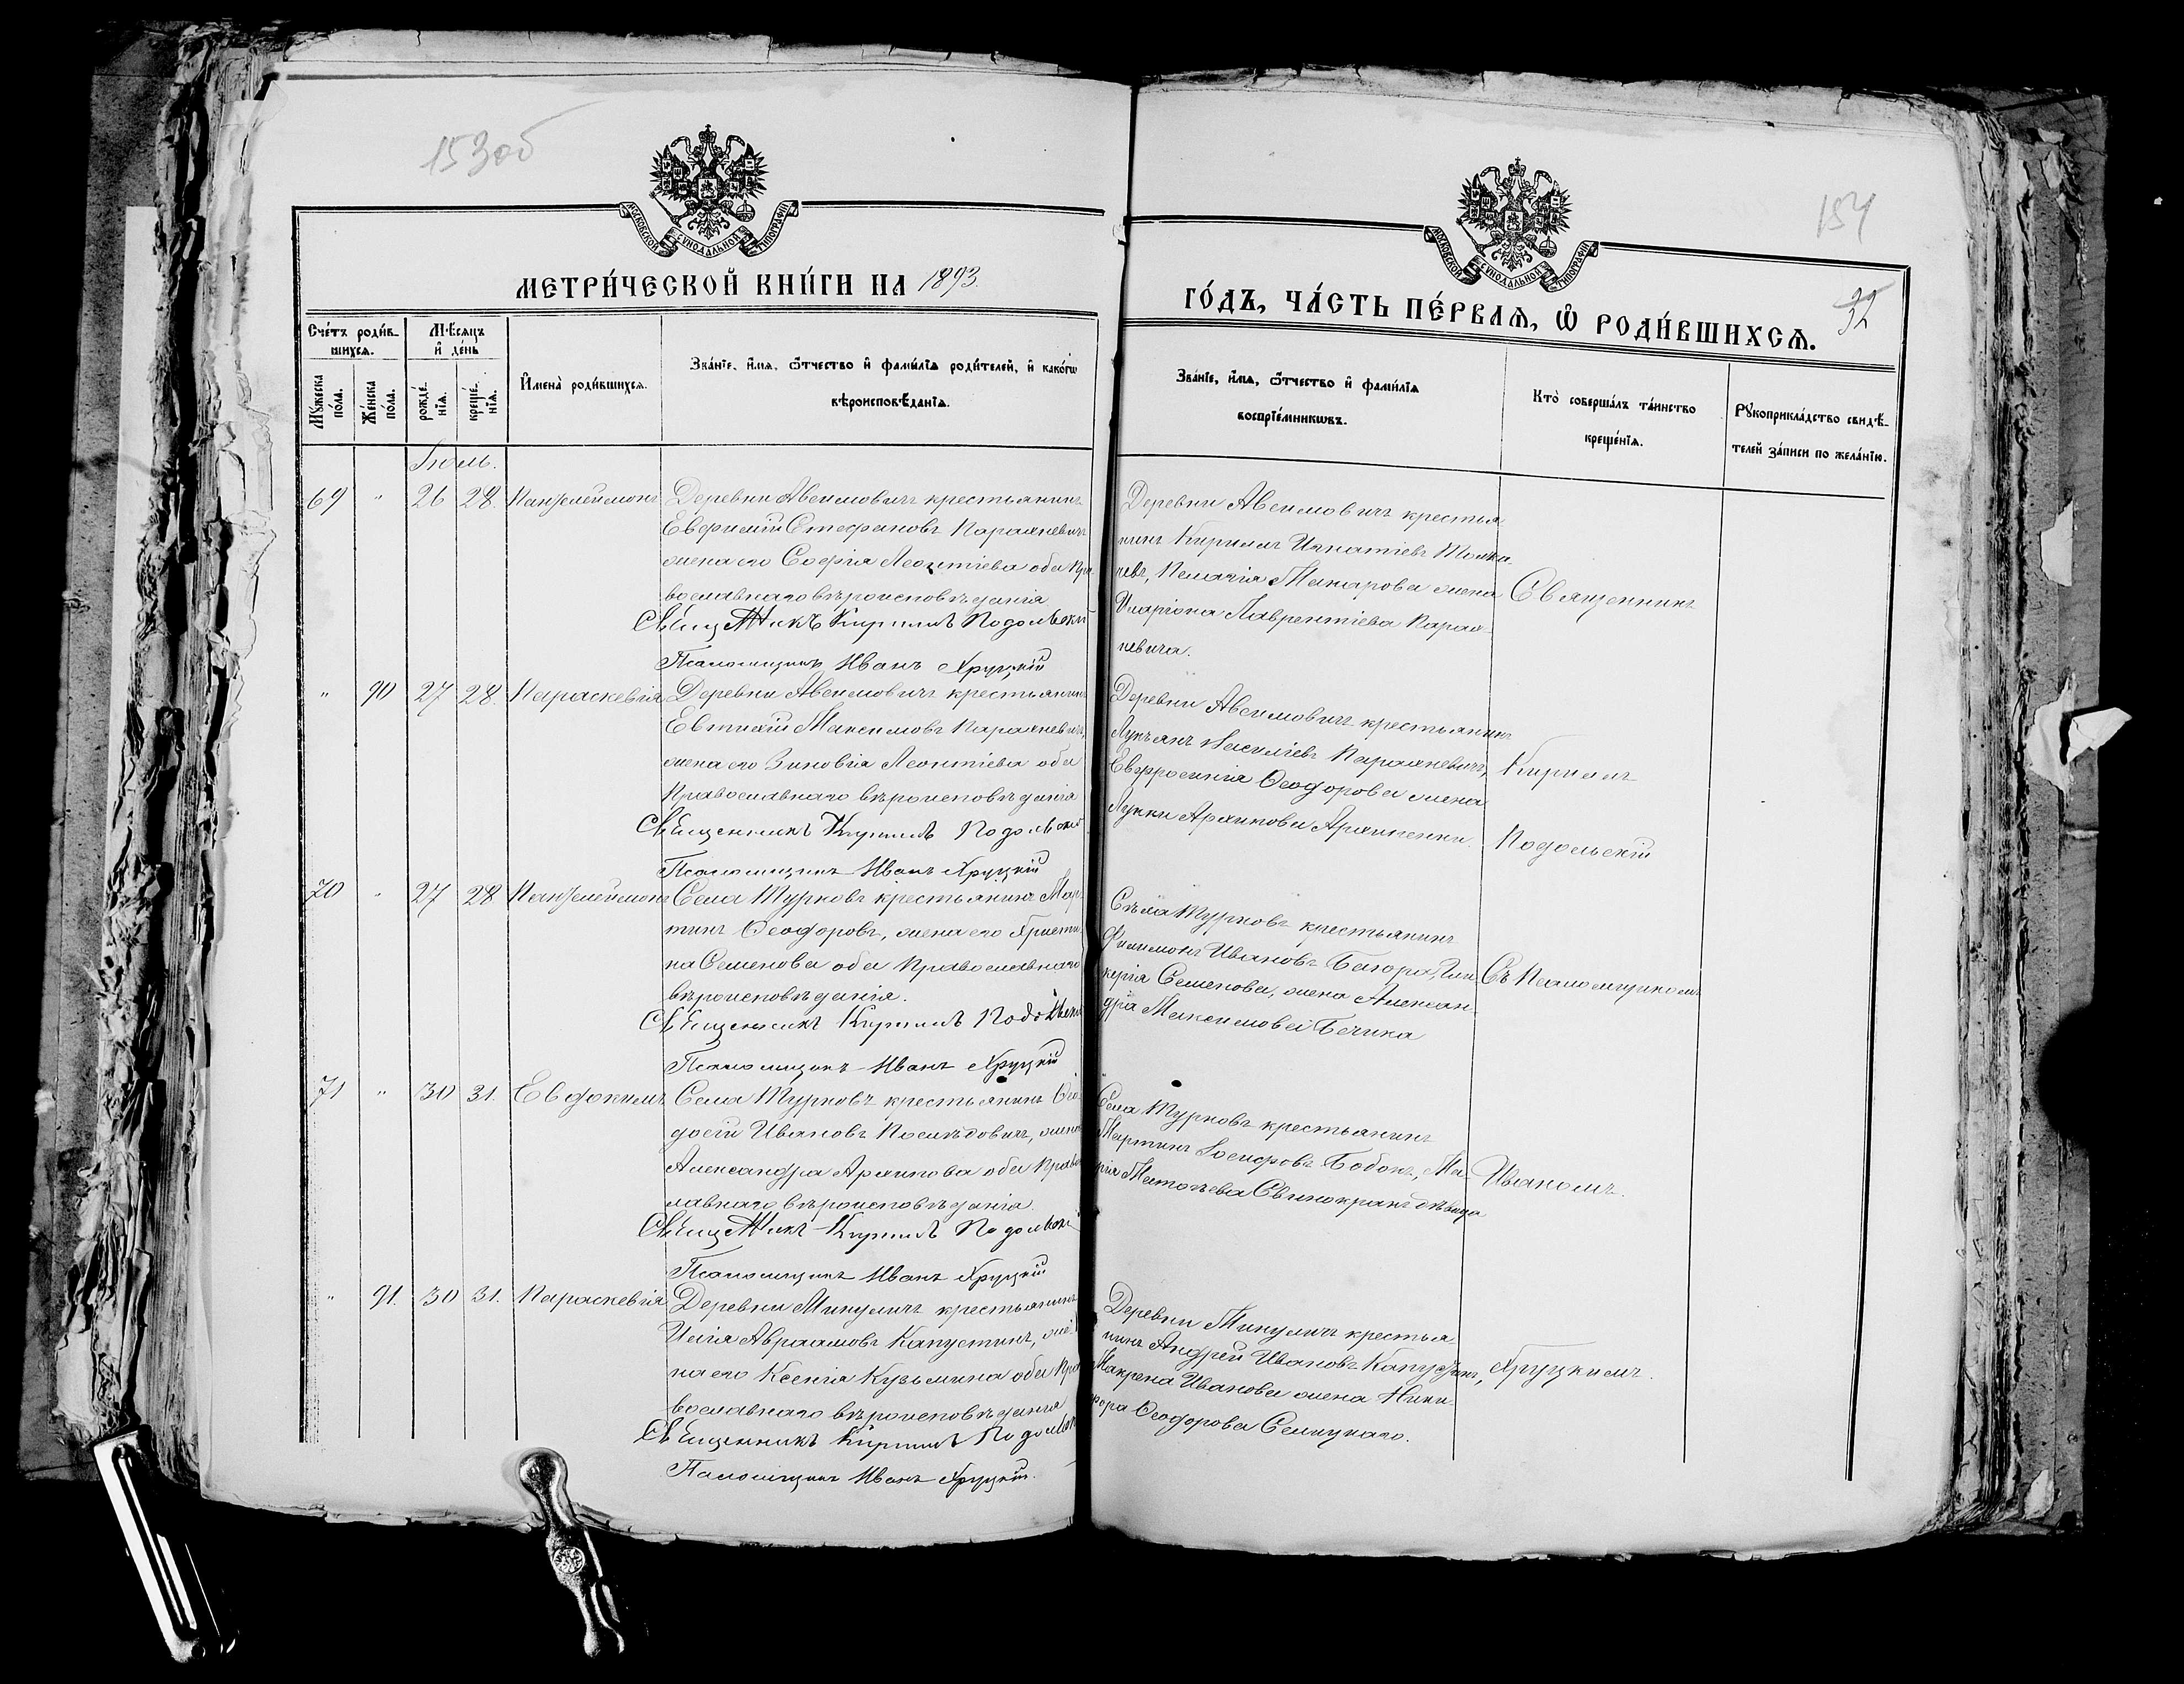 153об
МОСКОВСКОЙ СѴНОДАЛЬНОЙ ТИПОГРАФІИ
МЕТРИ́ЧЕСКОЙ КНИ́ГИ НА 1893.
Сче́тъ роди́вшихсѧ.
Мꙋ́жеска по́ла.
Же́нска по́ла.
Мѣ́сѧцъ и҆ де́нь
рожде́нїѧ.
креще́нїѧ.
И҆мена̀ роди́вшихсѧ.
Зва́нїе, и҆́мѧ, ѻ҆́тчество и҆ фами́лїѧ роди́телей, и҆ како́гѡ
вѣроисповѣ́данїѧ.
Іюль.
69 " 26 28. Пантелеймонъ
Деревни Авсимовичъ крестьянинъ
Евфимій Стефановъ Параневичъ
жена его Софія Леонтіева оба Пра
вославнаго вѣроисповѣданія
Священникъ Кириллъ Подольскій
Псаломщикъ Иванъ Хруцкій
" 90 27 28. Параскевія
Деревни Авсимовичъ крестьянинъ
Евтихій Максимовъ Параневичъ,
жена его Зиновія Леонтіева оба
Православнаго вѣроисповѣданія
Священникъ Кириллъ Подольскій
Псаломщикъ Иванъ Хруцкій
70 " 27 28 Пантелеймонъ
Села Турковъ крестьянинъ Мар
тинъ Ѳеодоровъ, жена его Христи
на Семенова оба Православнаго
вѣроисповѣданія.
Священникъ Кириллъ Подольскій
Псаломщикъ Иванъ Хруцкій
71 " 30 31. Евдокимъ
Села Турковъ крестьянинъ Ѳео
досій Ивановъ жена
Александра Архипова оба Право
славнаго вѣроисповѣданія.
Священникъ Кириллъ Подольскій
Псаломщикъ Иванъ Хруцкій
" 91. 30 31. Параскевія
Деревни Микуличъ крестьянинъ
Илія Авраамовъ Капустинъ, же
на его Ксенія Кузьмина оба Пра
вославнаго вѣроисповѣданія
Священникъ Кириллъ Подольскій
Псаломщикъ Иванъ Хруцкій.
154
МОСКОВСКОЙ СѴНОДАЛЬНОЙ ТИПОГРАФІИ
ГО́ДЪ, ЧА́СТЬ ПЕ́РВАѦ, Ѽ РОДИ́ВШИХСѦ.
32
Зва́нїе, и҆́мѧ, ѻ҆́тчество и҆ фами́лїѧ
воспрїе́мникѡвъ.
Кто̀ соверша́лъ та́инство
креще́нїѧ.
Рꙋкоприкла́дство свидѣ́-
телей за́писи по жела́нїю.
Деревни Авсимовичъ крестья
нинъ Кириллъ Игнатіевъ
Пелагія Макарова жена
Иларіона Лаврентіева Пара-
невича.
Деревни Авсимовичъ крестьянинъ
Лукъянъ Василіевъ Параневичъ,
Евфросинія Ѳеодорова жена
Лукки Архипова Архипенки.
Села Турковъ крестьянинъ
Филимонъ Ивановъ Гли
керія Семенова, жена Алексан
дра Максимова
Села Турковъ крестьянинъ
Мартинъ Іосифовъ Бобокъ, Ма-
рія дѣвица
Деревни Микуличъ крестья
нинъ Андрей Ивановъ Капустинъ,
Макрена Иванова жена Ники
фора Ѳеодорова Селицкаго.
Священникъ
Кириллъ
Подольскій
Съ Псаломщикомъ
Иваномъ
Хруцкимъ.